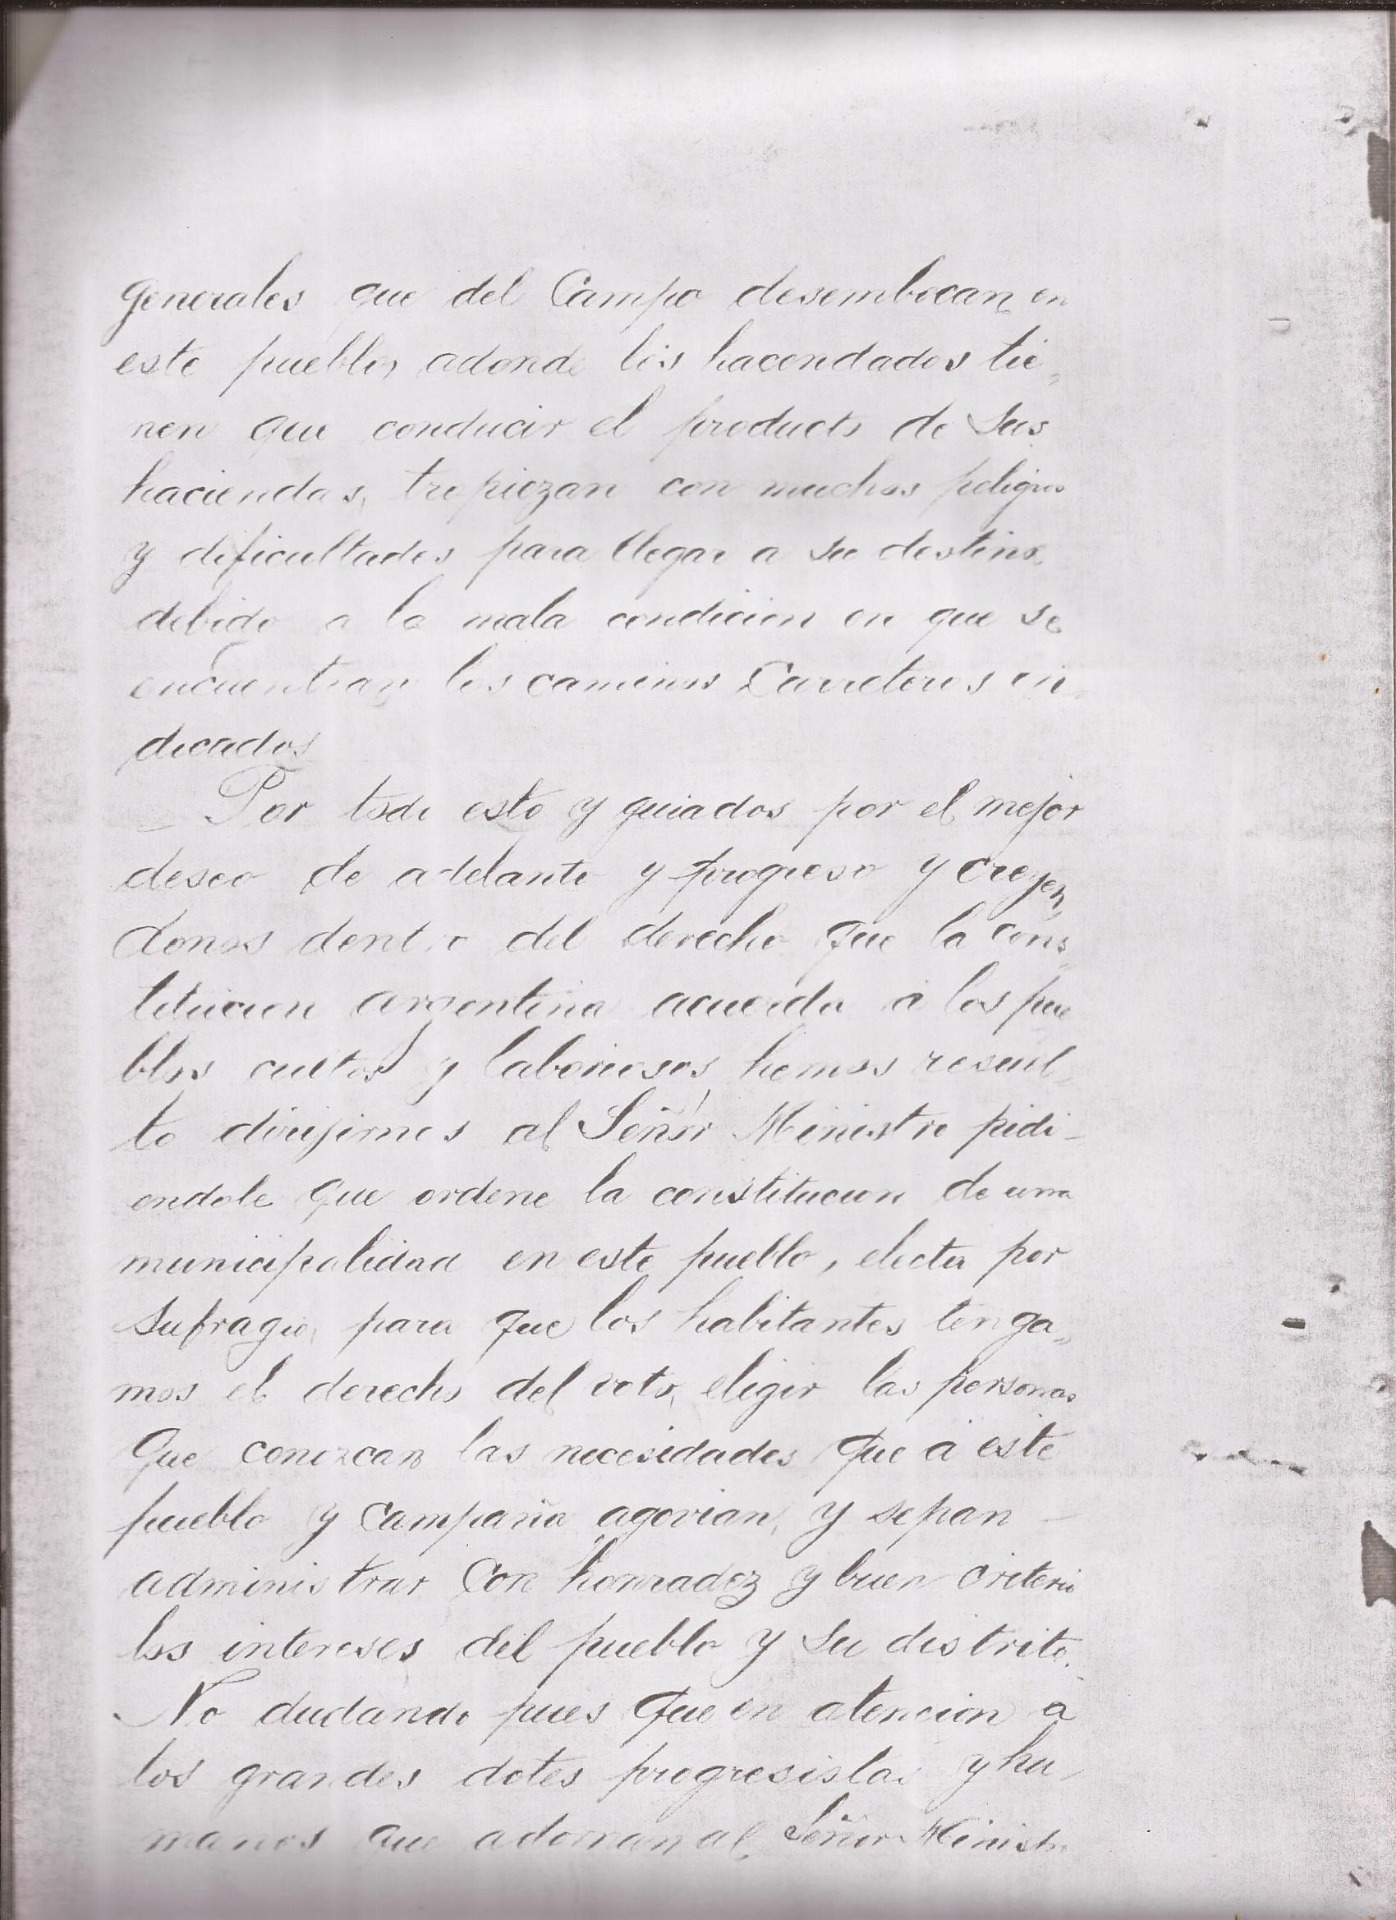 generales que del Campo desembocan en
este pueblo, adonde los hacendados tie„
nen que conducir el producto de sus
haciendas, tropiezan con muchos peligros
y dificultades para llegar a su destino,
debido a la mala condicion en que se
encuentran los caminos Carreteros in„
dicados
Por todo esto y guiados por el mejor
deseo de adelanto y progreso y creyen„
donos dentro del derecho que la cons„
titucion argentina acuerda á los pue
blos cultos y laboriosos, hemos resuel„
to dirijirnos al Señor Ministro pidi-
endole que ordene la constitucion de una
municipalidad en este pueblo, electa por
sufragio, para que los habitantes tenga„
mos el derecho del voto, eligir las personas
que conozcan las necesidades que á este
pueblo y campaña agovian, y sepan -
administrar con honradez y buen criterio
los intereses del pueblo y su distrito.
No dudando pues que en atencion á
los grandes dotes progresistas y hu-
manos que adornan al Señor Ministro